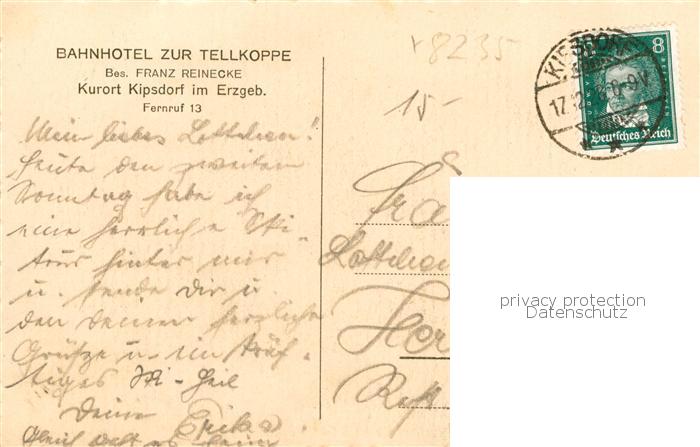 BAHNHOTEL ZUR TELLKOPPE
Bes. FRANZ REINECKE
Kurort Kipsdorf im Erzgeb.
Fernruf 13
Mein liebes Lottchen!
Heute den zweiten
Sonntag habe ich
eine herrliche Ski-
tour hinter mir
u. sende Dir u.
den Deinen herzliche
Grüsze u. ein kräf-
tiges Ski-Heil
Deine Erika.
Gleich geht es heim
v8235
15-
KIPSDORF
17.12. 8-9V
8
Deutsches Reich
Lottchen
privacy protection
Datenschutz